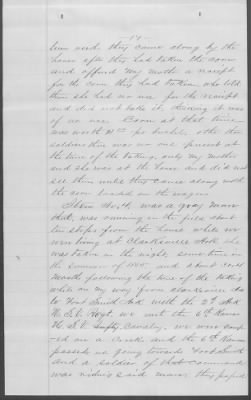 14
been used. They came along by the
house after they had taken the corn
and offered my mother a receipt
for the corn they had taken, who told
them she had no use for the receipt
and did not take it, thinking it was
of no use. Corn at that time
was worth per bushel. other than
soldiers there was no one present at
the time of the taking, only my mother
and she was at the house and did not
see them until they came along with
the corn loaded in the wagon.
Item was a gray mare
that was running in the field about
ten steps from the house while we
were living at Clarksville Ark she
was taken in the night, sometime in
the summer of and about
month following the time of the taking
while on my way from Clarksville Ark
to Fort Smith Ark with the 2d Ark
Regt. we met the 6th Kansas
Cavalry, we were camped
on a Creek and the 6th Kansas
passed us going towards
and a soldier of that command
was riding said mare, they passed